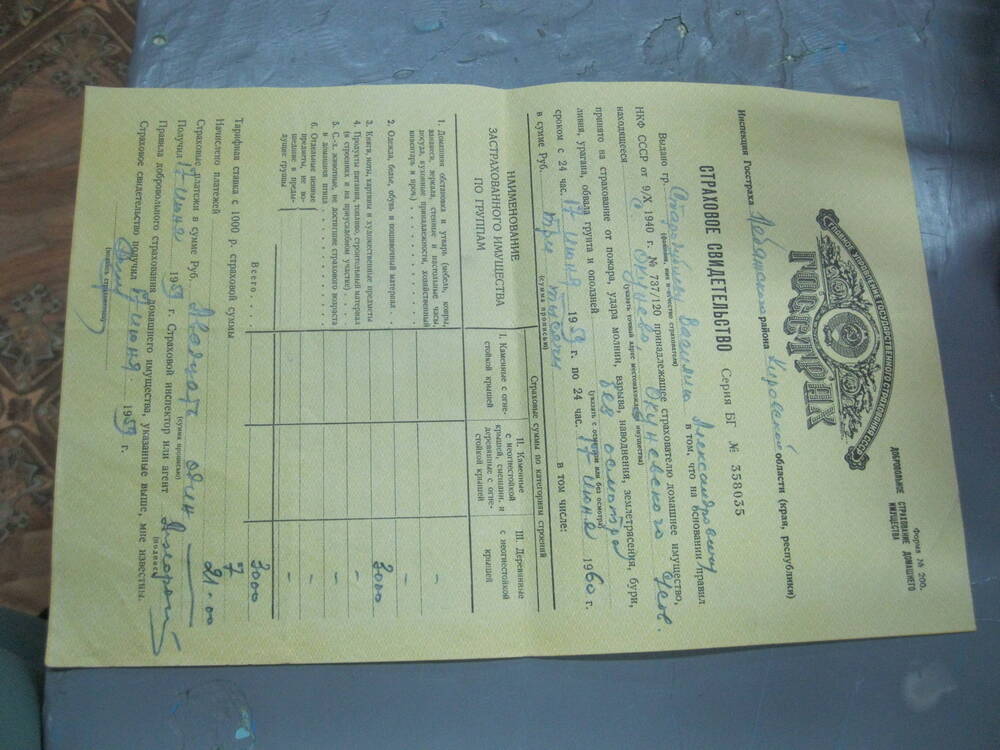 Форма № 200.
ДОБРОВОЛЬНОЕ СТРАХОВАНИЕ ДОМАШНЕГО
ИМУЩЕСТВА
ГЛАВНОЕ УПРАВЛЕНИЕ ГОСУДАРСТВЕННОГО СТРАХОВАНИЯ СССР
ГОССТРАХ
Инспекция Госстраха Лебяжского района Кировской области (края, республики)
СТРАХОВОЕ СВИДЕТЕЛЬСТВО Серия БГ № 358035
Выдано гр. Василию Александровичу в том, что на основании Правил
(фамилия, имя и отчество страхователя)
НКФ СССР от 9/X 1940 г. № 737/120 принадлежащее страхователю домашнее имущество,
находящееся с Окунево, Окуневского
(указать точный адрес местонахождения имущества)
принято на страхование от пожара, удара молнии, взрыва, наводнения, землетрясения, бури,
ливня, урагана, обвала грунта и оползней без осмотра
(указать с осмотром или без осмотра)
сроком с 24 час. 17 июня 1959 г. по 24 час. 17 июня 1960 г.
в сумме Руб. Три тысячи в том числе:
(сумма прописью)
НАИМЕНОВАНИЕ
ЗАСТРАХОВАННОГО ИМУЩЕСТВА
ПО ГРУППАМ
Страховые суммы по категориям строений
I. Каменные с огне-
стойкой крышей
II. Каменные
с неогнестойкой
крышей, смешанн. и
деревянные с огне-
стойкой крышей
III. Деревянные
с неогнестойкой
крышей
1. Домашняя обстановка и утварь (мебель, ковры,
занавеси, зеркала, стенные и настольные часы,
посуда, кухонные принадлежности, хозяйственный
инвентарь и проч.) -
2. Одежда, белье, обувь и пошивочный материал 3000
3. Книги, ноты, картины и художественные предметы -
4. Продукты питания, топливо, строительный материал
(в строениях и на приусадебном участке) -
5. С.-х. животные, не достигшие страхового возраста
и домашняя птица -
6. Отдельные ценные
предметы, не во-
шедшие в преды-
дущие группы -
Всего 3000
Тарифная ставка с 1000 р. страховой суммы 7
Начислено платежей 21-00
Страховые платежи в сумме Руб. Двадцать один
(сумма прописью)
Получил 17 июня 1959 г. Страховой инспектор или агент
(подпись)
Правила добровольного страхования домашнего имущества, указанные выше, мне известны.
Страховое свидетельство получил 17 июня 1959 г.
(подпись страхователя)